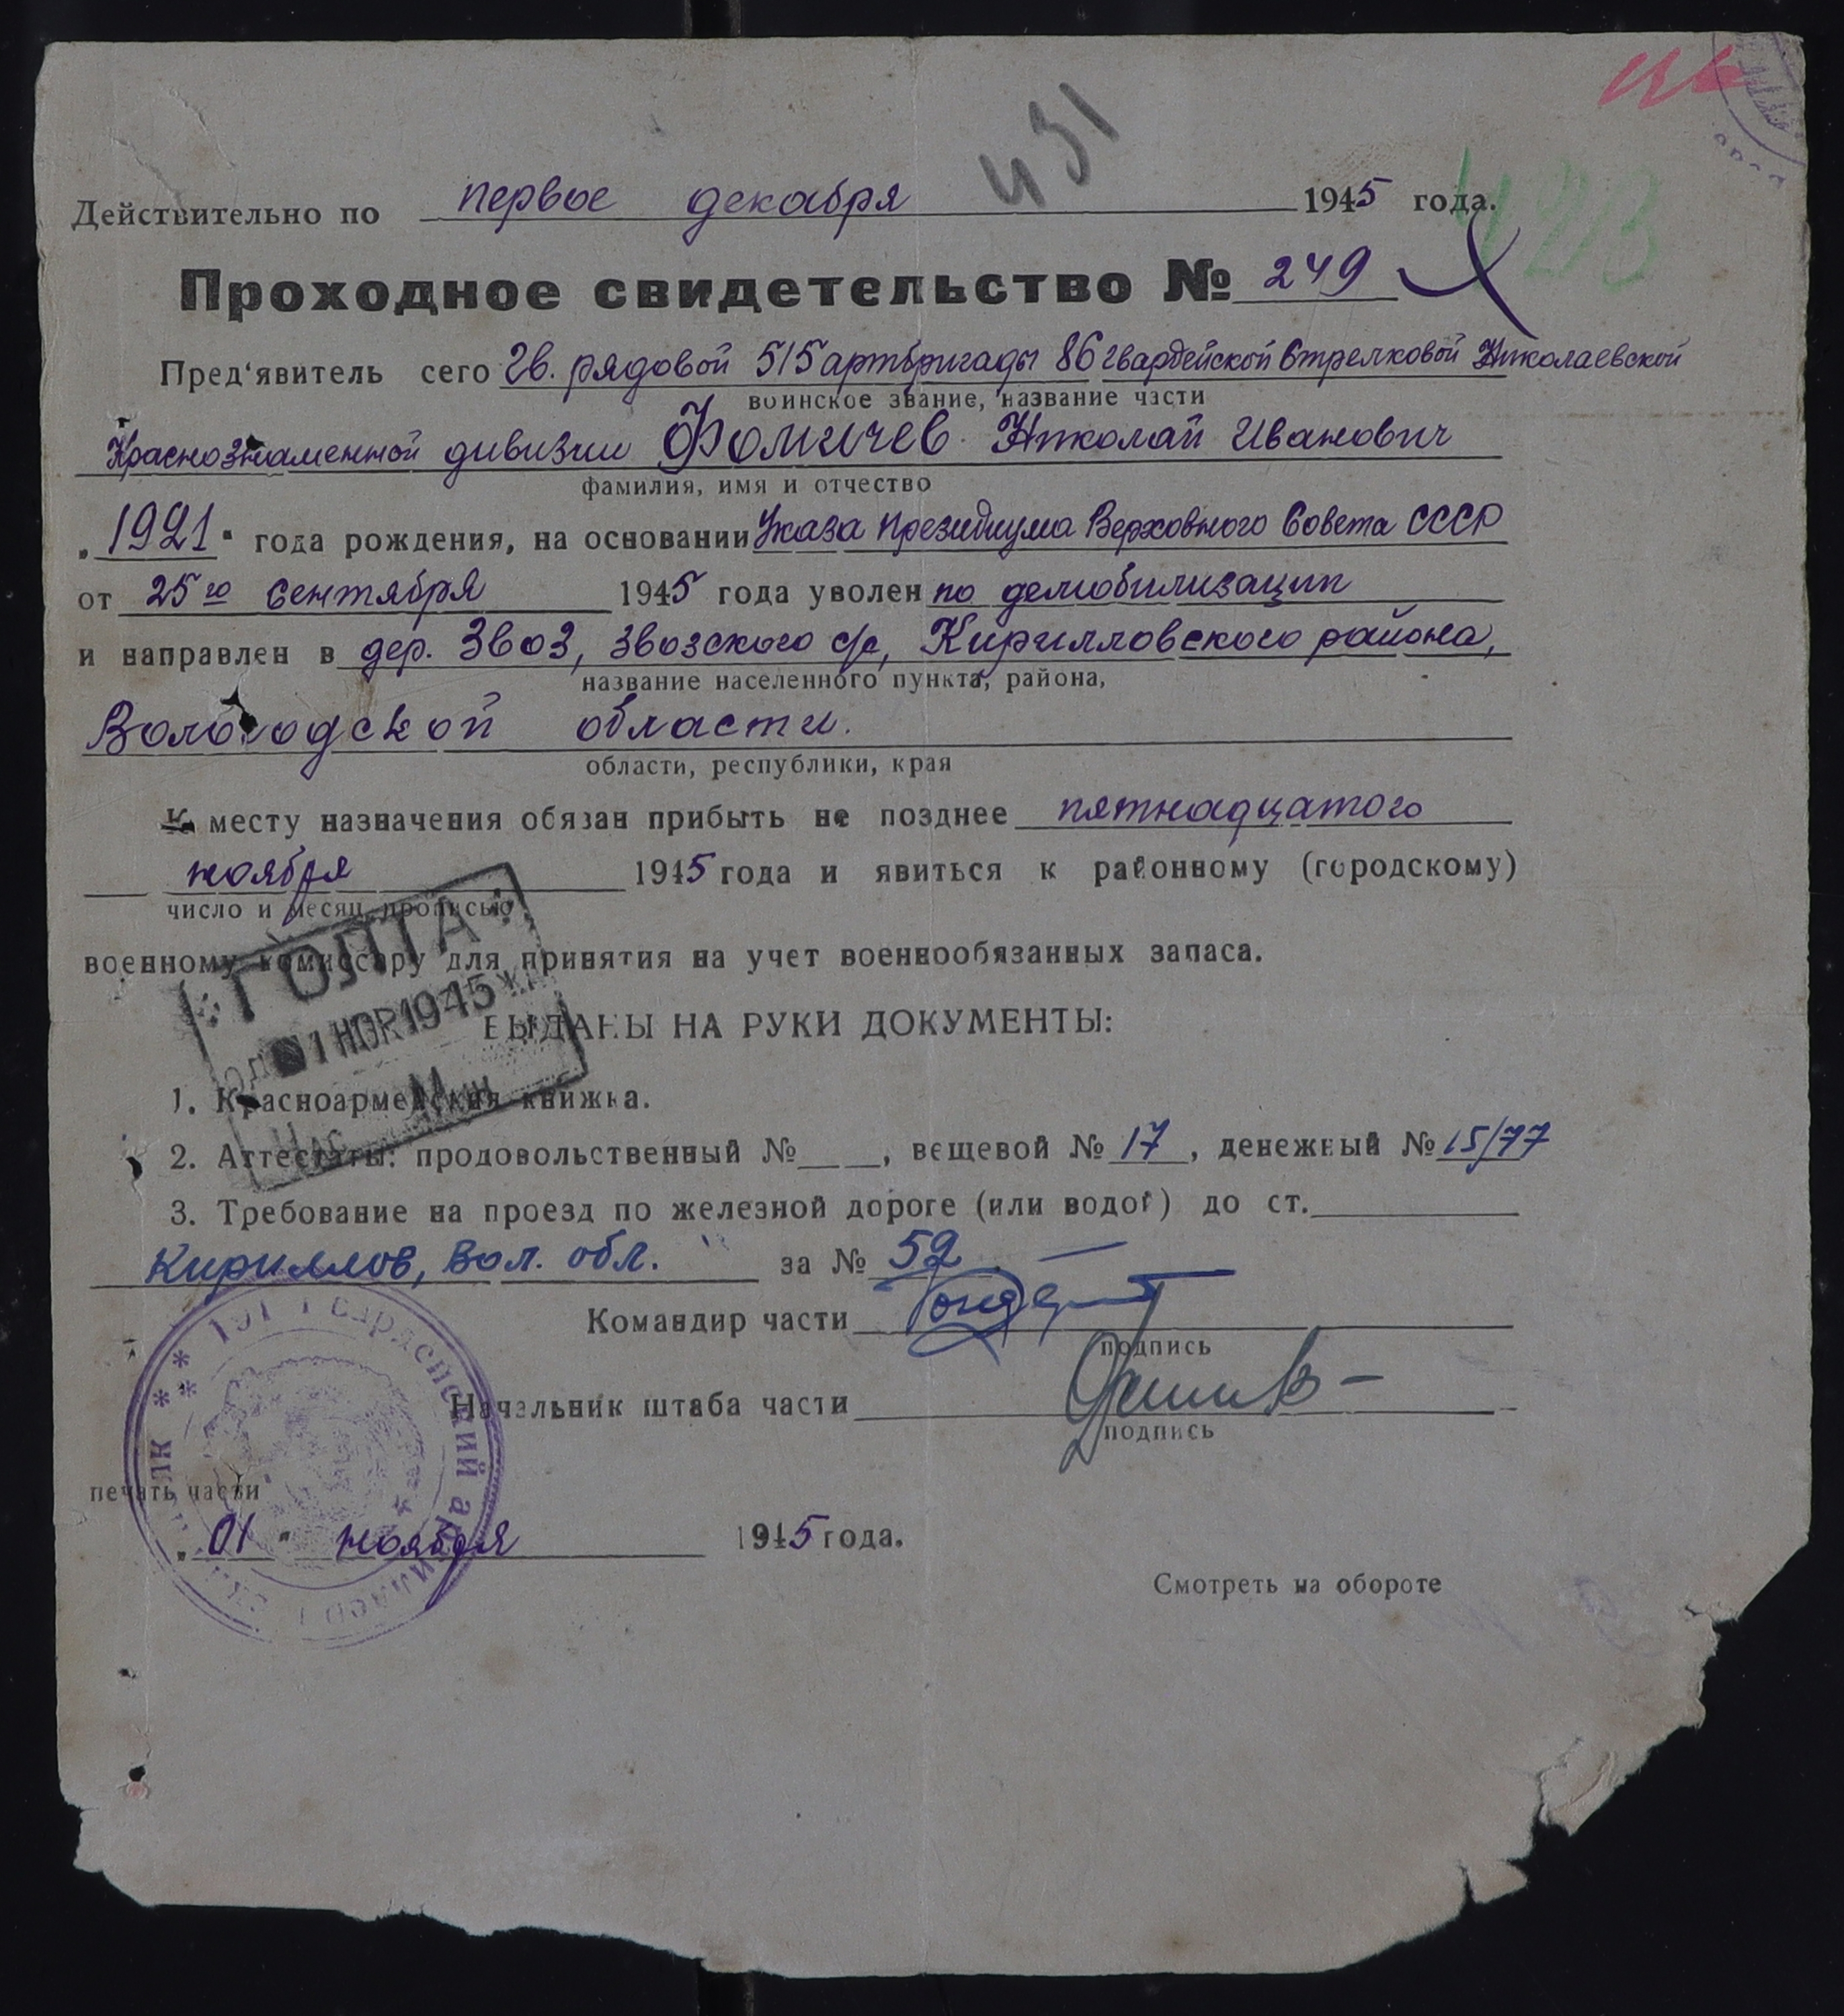 431
Действительно по первое декабря 1945 года.
4213
Проходное свидетельство № 249
Пред'явитель сего Гв. рядовой 515 артбригады 86 гвардейской Стрелковой Николаевской
воинское звание, название части
Краснознаменной дивизии Фомичев Николай Иванович
фамилия, имя и отчество
„1921" года рождения, на основании Указа Президиума Верховного Совета СССР
от 25го сентября 1945 года уволен по демобилизации
и направлен в дер. Звоз, Звозского с/с, Кирилловского района,
название населенного пункта, района,
Вологодской области.
области, республики, края
К месту назначения обязан прибыть не позднее пятнадцатого
ноября 1945 года и явиться к районному (городскому)
число и месяц прописью
военному комиссару для принятия на учет военнообязанных запаса.
ГОЛТА
1 НОЯ 1945
Час Мин
ВЫДАНЫ НА РУКИ ДОКУМЕНТЫ:
1. Красноармейская книжка.
2. Аттестаты: продовольственный № , вещевой № 17, денежный № 15/77
3. Требование на проезд по железной дороге (или водой) до ст.
Кириллов, Вол. обл. за № 52
Командир части
подпись
Начальник штаба части
подпись
печать части
Гвардейский артиллер
„01" ноября 1945 года.
Смотреть на обороте